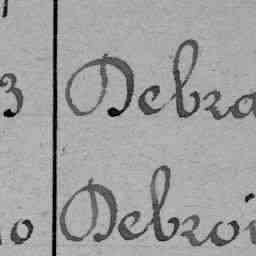 3 Debra
10 Debroi